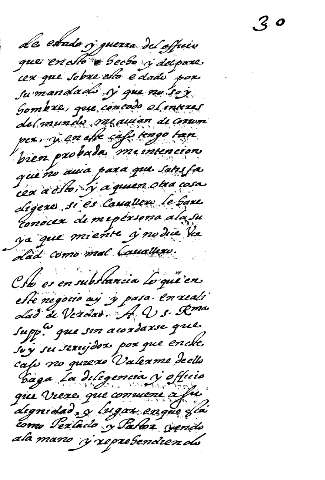 30
de estado y guerra del officio
que en esto e hecho y del pare
cer que sobre ello e dado por
su mandado, y que no soy
hombre, que con todo el interes
del mundo, me avian de corrom
per, y en este caso tengo tan
bien probada mi intencion
que no avia para que satisfa
cer a esto, y a quien otra cosa
digere, si es Cavallero le hare
conocer de mi persona a la su
ya que miente y no dice Ver
dad como mal Cavallero.
Esto es en substancia lo que en
este negocio ay y pasa en reali
dad de Verdad. A V. S. Rma
suppco que sin acordarse que
soy su servidor por que en este
caso no quiero Valerme de ello
haga la diligencia y officio
que Viere que conviene a su
dignidad, y lugar en que esta
como Perlado y Pastor yendo
a la mano y reprehendiendo